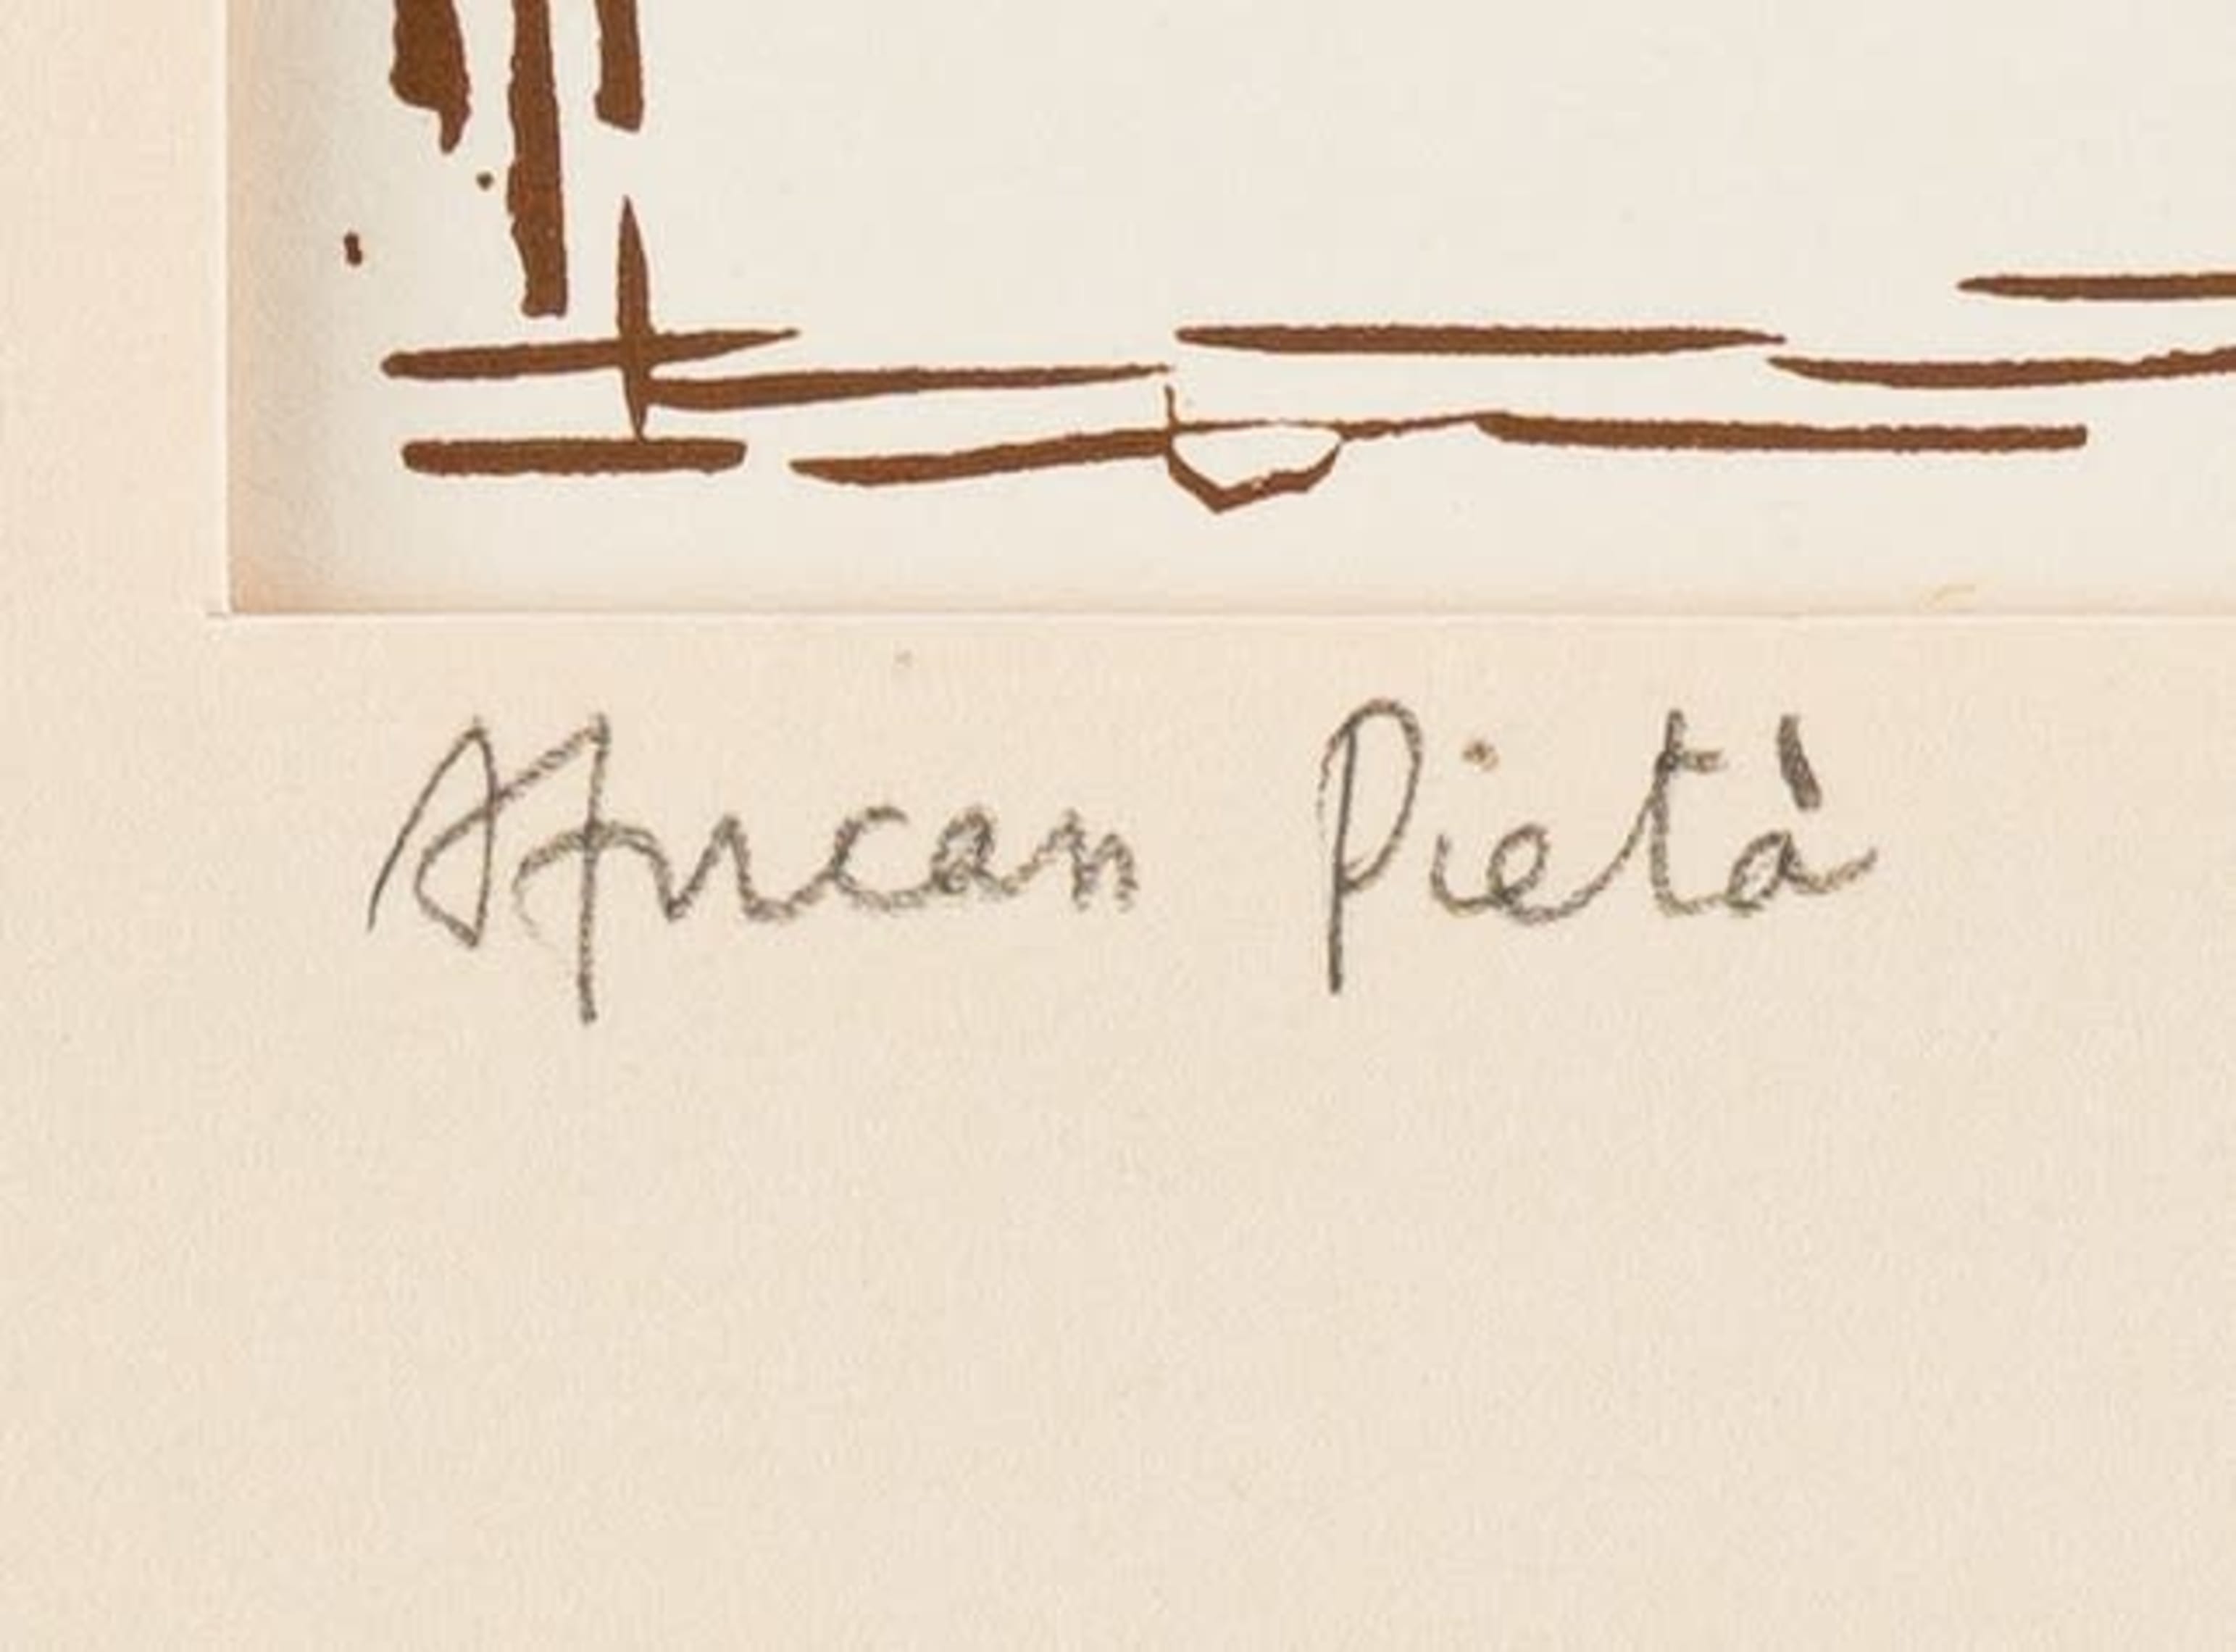 African Pietà